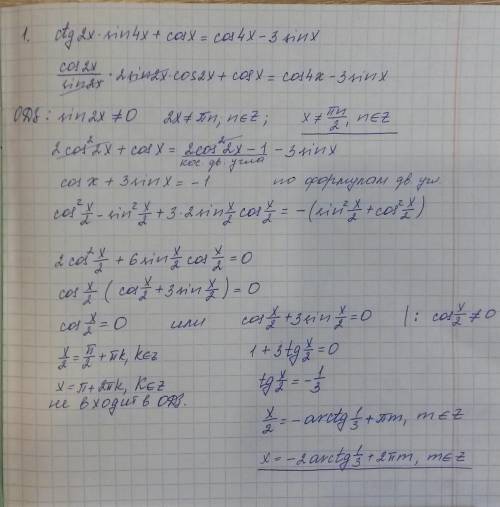 1. ctg2x·sin4x + cosx = cos4x − 3sinx
cos2x/sin2x · 2sin2x·cos2x + cosx = cos4x − 3sinx
ОДЗ: sin2x ≠ 0   2x ≠ πn, n∈Z;   x ≠ πn/2, n∈Z
2cos²2x + cosx = 2cos²2x − 1 − 3sinx
кос. дв. угла
cosx + 3sinx = −1   по формулам дв. уг.
cos²x/2 − sin²x/2 + 3·2sin x/2 cos x/2 = −(sin²x/2 + cos²x/2)
2cos²x/2 + 6sin x/2 cos x/2 = 0
cos x/2 (cos x/2 + 3sin x/2) = 0
cos x/2 = 0   или   cos x/2 + 3sin x/2 = 0   |: cos x/2 ≠ 0
x/2 = π/2 + πk, k∈Z   1 + 3tg x/2 = 0
x = π + 2πk, k∈Z   tg x/2 = −1/3
не входит в ОДЗ.
x/2 = −arctg 1/3 + πm, m∈Z
x = −2arctg 1/3 + 2πm, m∈Z